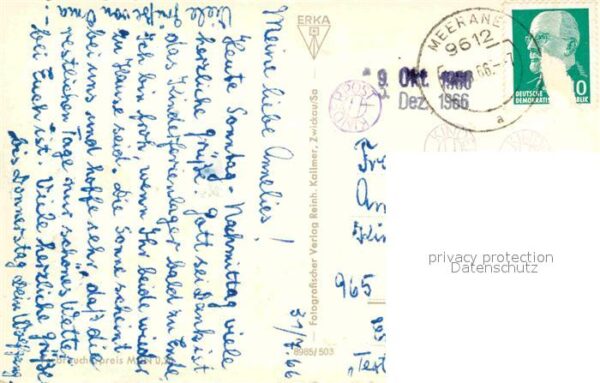 Meine liebe Annelies!
Heute Sonntag-Nachmittag viele
herzliche Grüße. Gott sei Dank ist
das Kinderferienlager bald zu Ende.
Ich bin froh, wenn Ihr beide wieder
zu Hause seid. Die Sonne scheint
bei uns und hoffe sehr, daß die
restlichen Tage nur schönes Wetter
bei Euch ist. Viele herzliche Grüße
bis Donnerstag Dein Wolfgang
Viele Grüße von Oma
31/7.66
ERKA
Fotografischer Verlag Reinh. Kallmer, Zwickau/Sa
8985/503
MEERANE
9612
66.-7
a
9. Okt. 1966
Dez. 1966
DEUTSCHE
DEMOKRATI
BLIK
965
privacy protection
Datenschutz